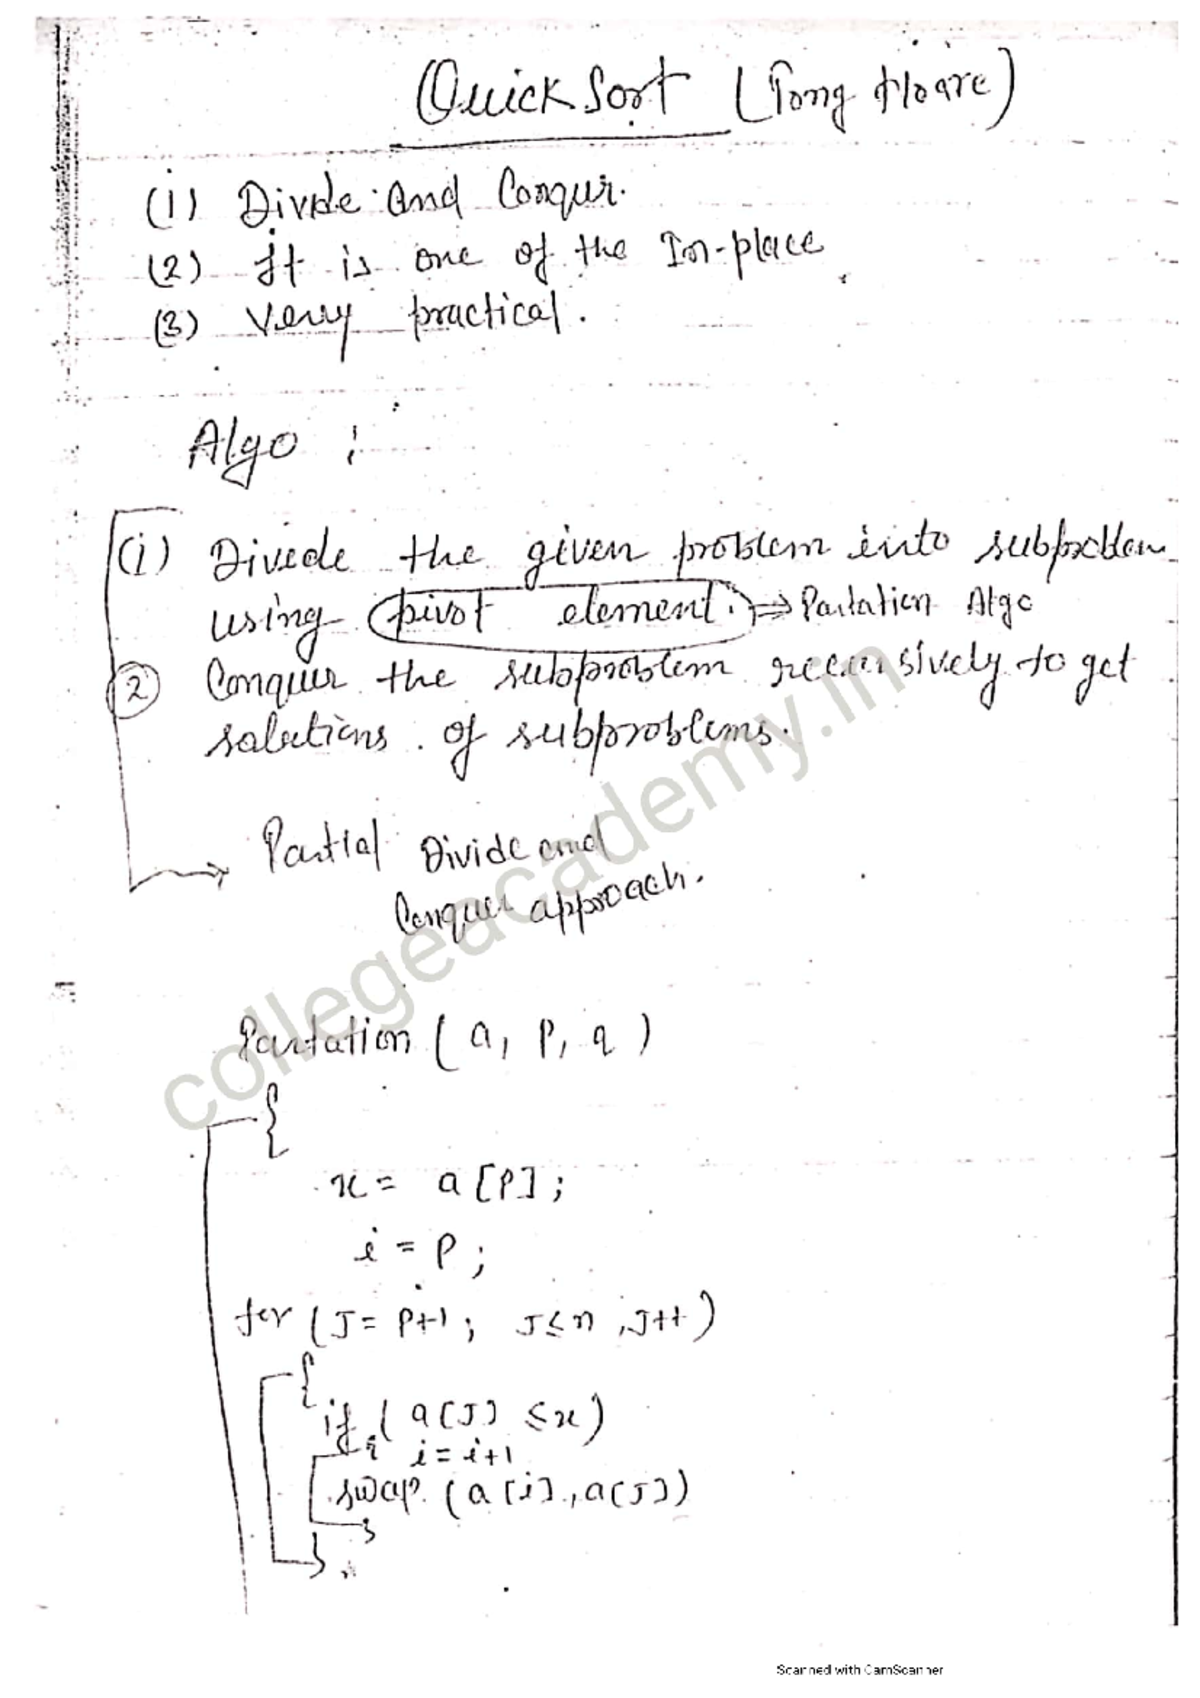 Quick Sort (Tony Hoare)
(1) Divide and Conqur.
(2) It is one of the In-place
(3) Very practical.
Algo :
(i) Divede the given problem into subproblem
using pivot element. ⇒ Partation Algo
(2) Conquer the subproblem recursively to get
solutions of subproblems.
Partial Divide and
Conquer approach.
Partation ( a, p, q )
{
x = a [P] ;
i = P ;
for ( J = P+1 ; J ≤ n , J++ )
{
if ( a[J] ≤ x )
{ i = i+1
swap ( a[i] , a[J] )
}
}
collegeacademy.in
Scanned with CamScanner